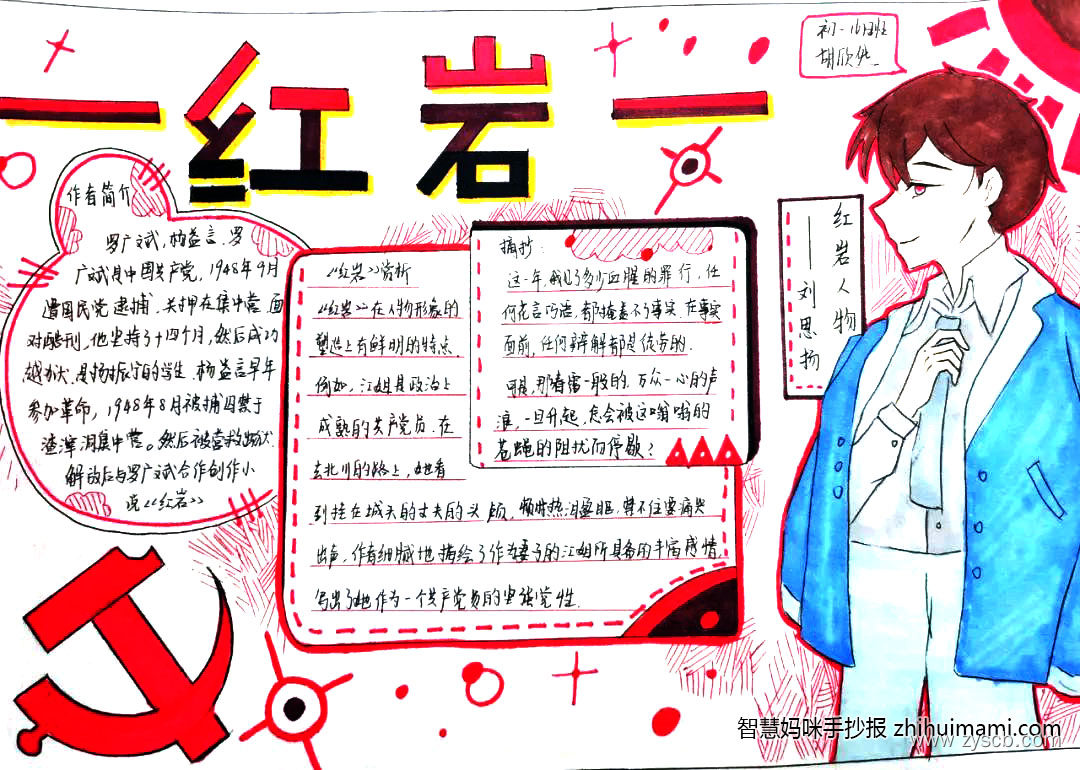 红岩
初一16班
胡欣
作者简介
罗广斌,杨益言.罗
广斌是中国共产党,1948年9月
遭国民党逮捕.关押在集中营.面
对酷刑,他坚持了十四个月,然后成功
越狱.是扬振宁的学生.杨益言早年
参加革命,1948年8月被捕囚禁于
渣滓洞集中营。然后被营救
解放后与罗广斌合作创作小
说《红岩》
《红岩》赏析
《红岩》在人物形象的
塑造上有鲜明的特点.
例如,江姐是政治上
成熟的共产党员.在
去北川的路上,她看
到挂在城头的丈夫的头颅,顿时热泪盈眶,禁不住要痛哭
出声,作者细腻地描绘了作为妻子的江姐所具备的丰富感情.
写出了她作为一个共产党员的坚强党性.
摘抄:
这一年,我见了多少血腥的罪行,任
何花言巧语.都掩盖不了事实.在事实
面前,任何辩解都是徒劳的.
可是,那春雷一般的.万众一心的声
浪,一旦升起,怎会被这嗡嗡的
苍蝇的阻扰而停歇?
红岩人物
——刘思扬
智慧妈咪手抄报 zhihuimami.com
www.zyscb.com